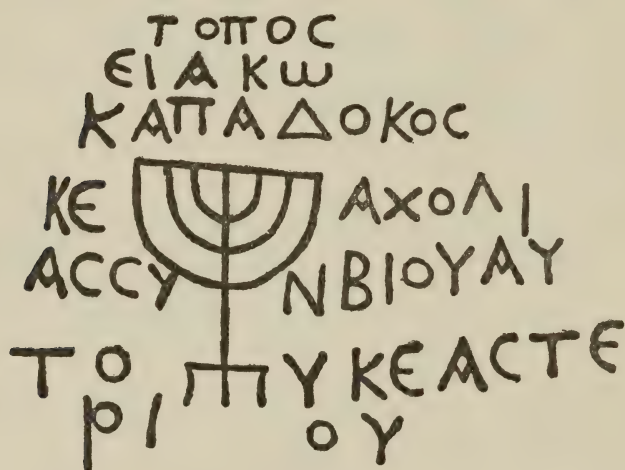 ΤΟΠΟC
ΕΙΑΚΩ
ΚΑΠΑΔΟΚΟC
ΚΕ ΑΧΟΛΙ
ΑCCΥ ΝΒΙΟΥΑΥ
ΤΟ ΥΚΕΑCΤΕ
ΡΙ ΟΥ